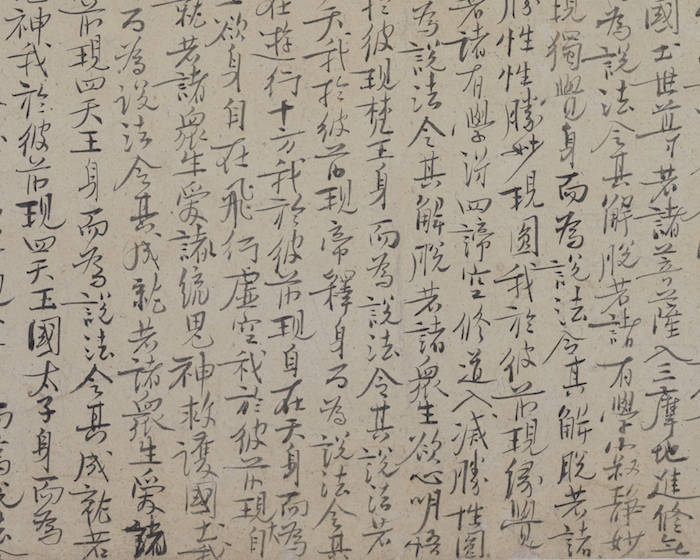 國土世尊若諸菩薩入三摩地進修無
為說法令其解脫若諸有學寂靜妙
現獨覺身而為說法令其解脫若諸
勝性性勝妙現圓我於彼前現緣覺
若諸有學得四諦空修道入滅勝性圓
為說法令其解脫若諸衆生欲心明悟
於彼現梵王身而為說法令其說法若
天我於彼前現帝釋身而為說法令其
在遊行十方我於彼前現身在天身而為
欲身自在飛行虛空我於彼前現自
就若諸衆生愛諸統鬼神救護國土我
而為說法令其成就若諸衆生愛諸
前現四天王身而為說法令其成就若
神我於彼前現四天王國太子身而為
而為說法